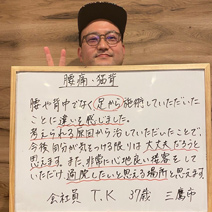 腰痛・猫背
腰や背中でなく足から施術していただいた
ことに違いを感じました。
考えられる原因から治していただいたことで、
今後自分が気をつける限りは大丈夫だろうと
思えます。また、非常に心地良い接客をして
いただけ、通院したいと思える場所と思えます。
会社員 T.K 37歳 三鷹市